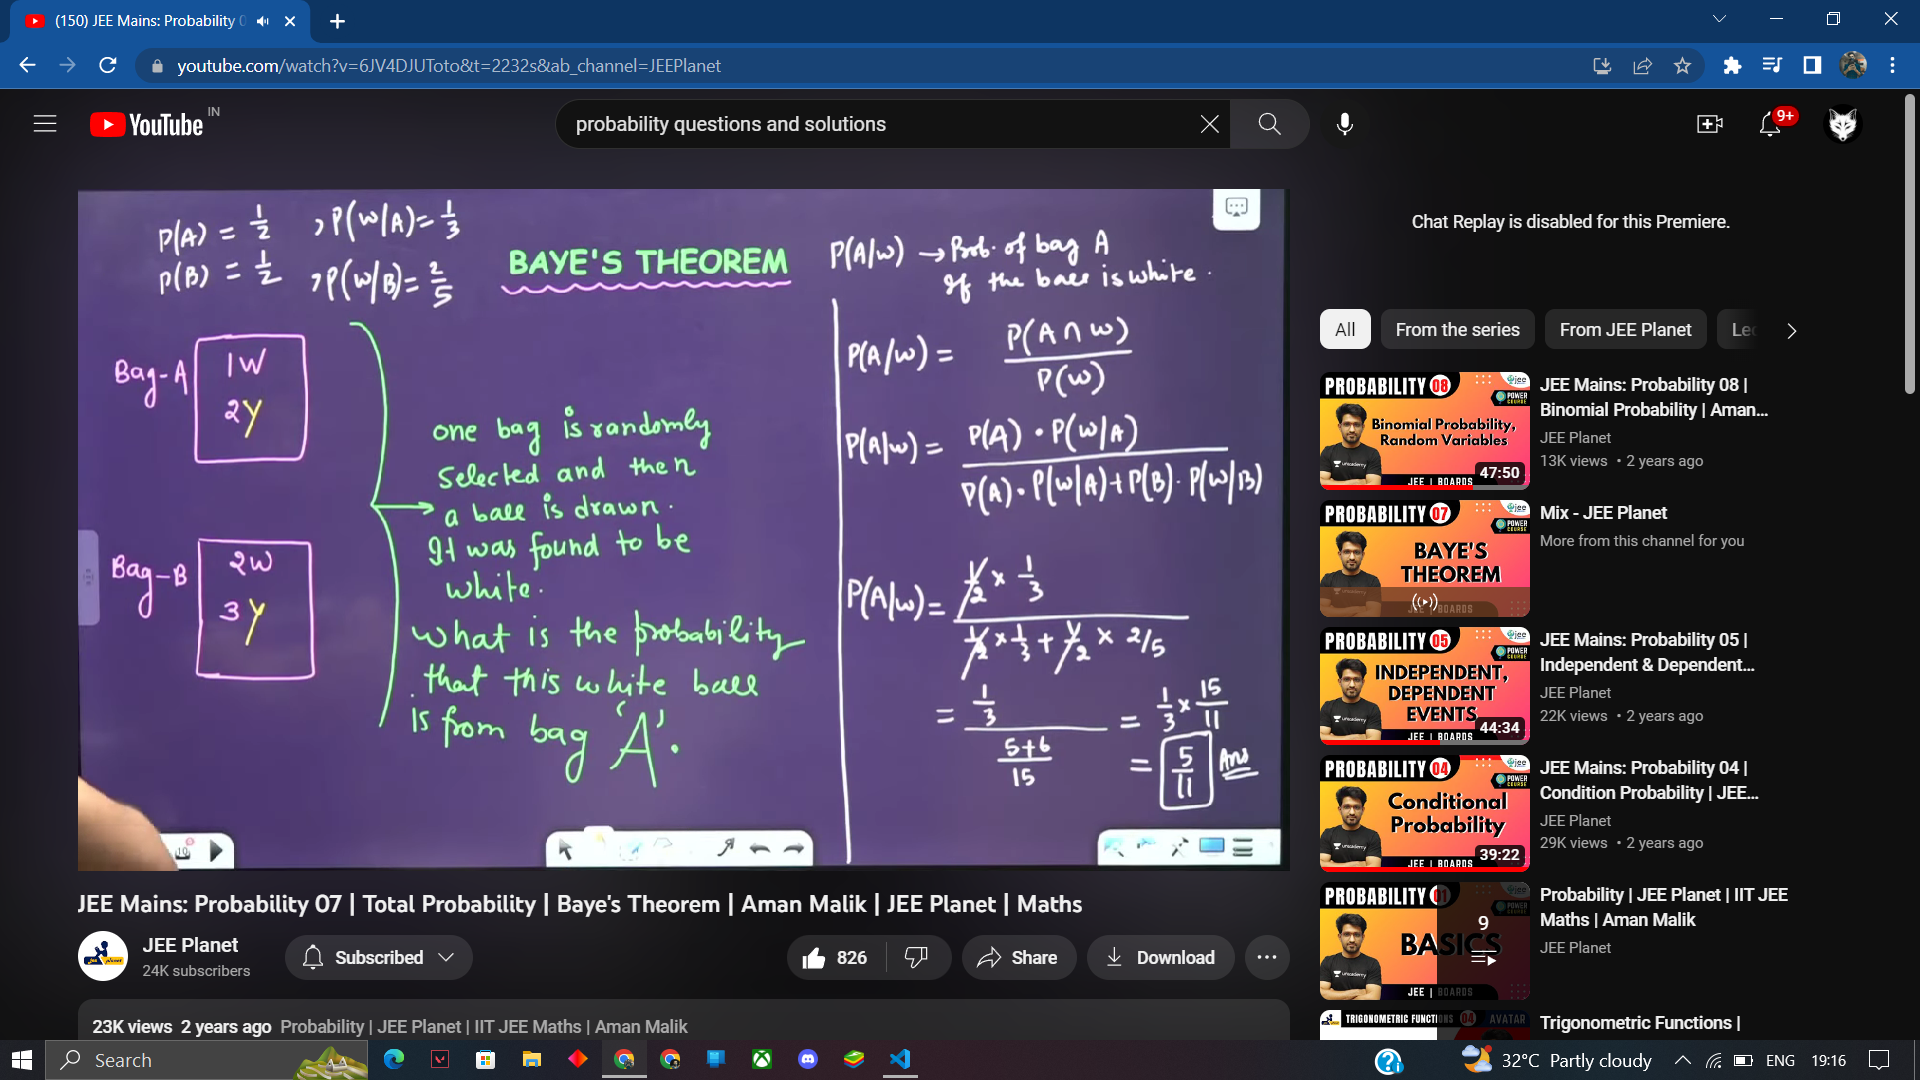 (150) JEE Mains: Probability 0
youtube.com/watch?v=6JV4DJUToto&t=2232s&ab_channel=JEEPlanet
YouTube IN
probability questions and solutions
9+
P(A) = 1/2 , P(W/A)= 1/3
P(B) = 1/2 , P(W/B)= 2/5
BAYE'S THEOREM
Bag-A
1W
2Y
Bag-B
2W
3Y
one bag is randomly
selected and then
a ball is drawn.
It was found to be
white.
What is the probability
that this white ball
is from bag 'A'.
P(A/W) → Prob. of bag A
If the ball is white.
P(A/W) = P(A∩W) / P(W)
P(A/W) = P(A) · P(W/A) / P(A) · P(W/A) + P(B) · P(W/B)
P(A/W) = 1/2 × 1/3 / 1/2 × 1/3 + 1/2 × 2/5
= 1/3 / 5+6/15 = 1/3 × 15/11
= 5/11 Ans
JEE Mains: Probability 07 | Total Probability | Baye's Theorem | Aman Malik | JEE Planet | Maths
JEE Planet
24K subscribers
Subscribed
826
Share
Download
23K views 2 years ago Probability | JEE Planet | IIT JEE Maths | Aman Malik
Chat Replay is disabled for this Premiere.
All From the series From JEE Planet Lec
PROBABILITY 08
POWER COURSE
Binomial Probability,
Random Variables
unacademy
47:50
JEE | BOARDS
JEE Mains: Probability 08 |
Binomial Probability | Aman...
JEE Planet
13K views • 2 years ago
PROBABILITY 07
POWER COURSE
BAYE'S
THEOREM
JEE | BOARDS
Mix - JEE Planet
More from this channel for you
PROBABILITY 05
POWER COURSE
INDEPENDENT,
DEPENDENT
EVENTS
unacademy
44:34
JEE | BOARDS
JEE Mains: Probability 05 |
Independent & Dependent...
JEE Planet
22K views • 2 years ago
PROBABILITY 04
POWER COURSE
Conditional
Probability
unacademy
39:22
JEE | BOARDS
JEE Mains: Probability 04 |
Condition Probability | JEE...
JEE Planet
29K views • 2 years ago
PROBABILITY 01
BASICS
9
unacademy
JEE | BOARDS
Probability | JEE Planet | IIT JEE
Maths | Aman Malik
JEE Planet
TRIGONOMETRIC FUNCTIONS 04 AVATAR
Trigonometric Functions |
Search
32°C Partly cloudy
ENG 19:16